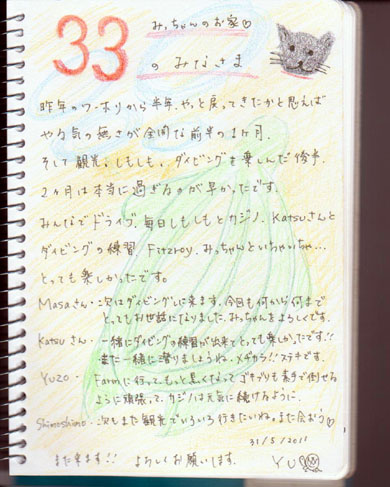 33
みっちゃんのお家♡
のみなさま
昨年のワーホリから半年、やっと戻ってきたかと思えば
やる気の無さが全開な前半の1ヶ月.
そして観光、しもしも、ダイビングを楽しんだ後半.
2ヶ月は本当に過ぎるのが早かったです.
みんなでドライブ、毎日しもしもとカジノ、Katsuさんと
ダイビングの練習、Fitzroy、みっちゃんといちゃいちゃ...
とっても楽しかったです。
Masaさん・次はダイビングしに来ます。今回も何から何まで
とってもお世話になりました。みっちゃんをよろしくです.
Katsuさん・一緒にダイビングの練習が出来てとっても楽しかったです!!
また一緒に潜りましょうね.メヂカラ!!ステキです.
Yuzo・Farmに行って、もっと黒くなってゴキブリも素手で倒せる
ように頑張って.カジノは元気に続けるように.
Shimoshimo・次もまた観光でいろいろ行きたいね。また会おう♡
31/5/2011
また来ます!! よろしくお願いします.
YU